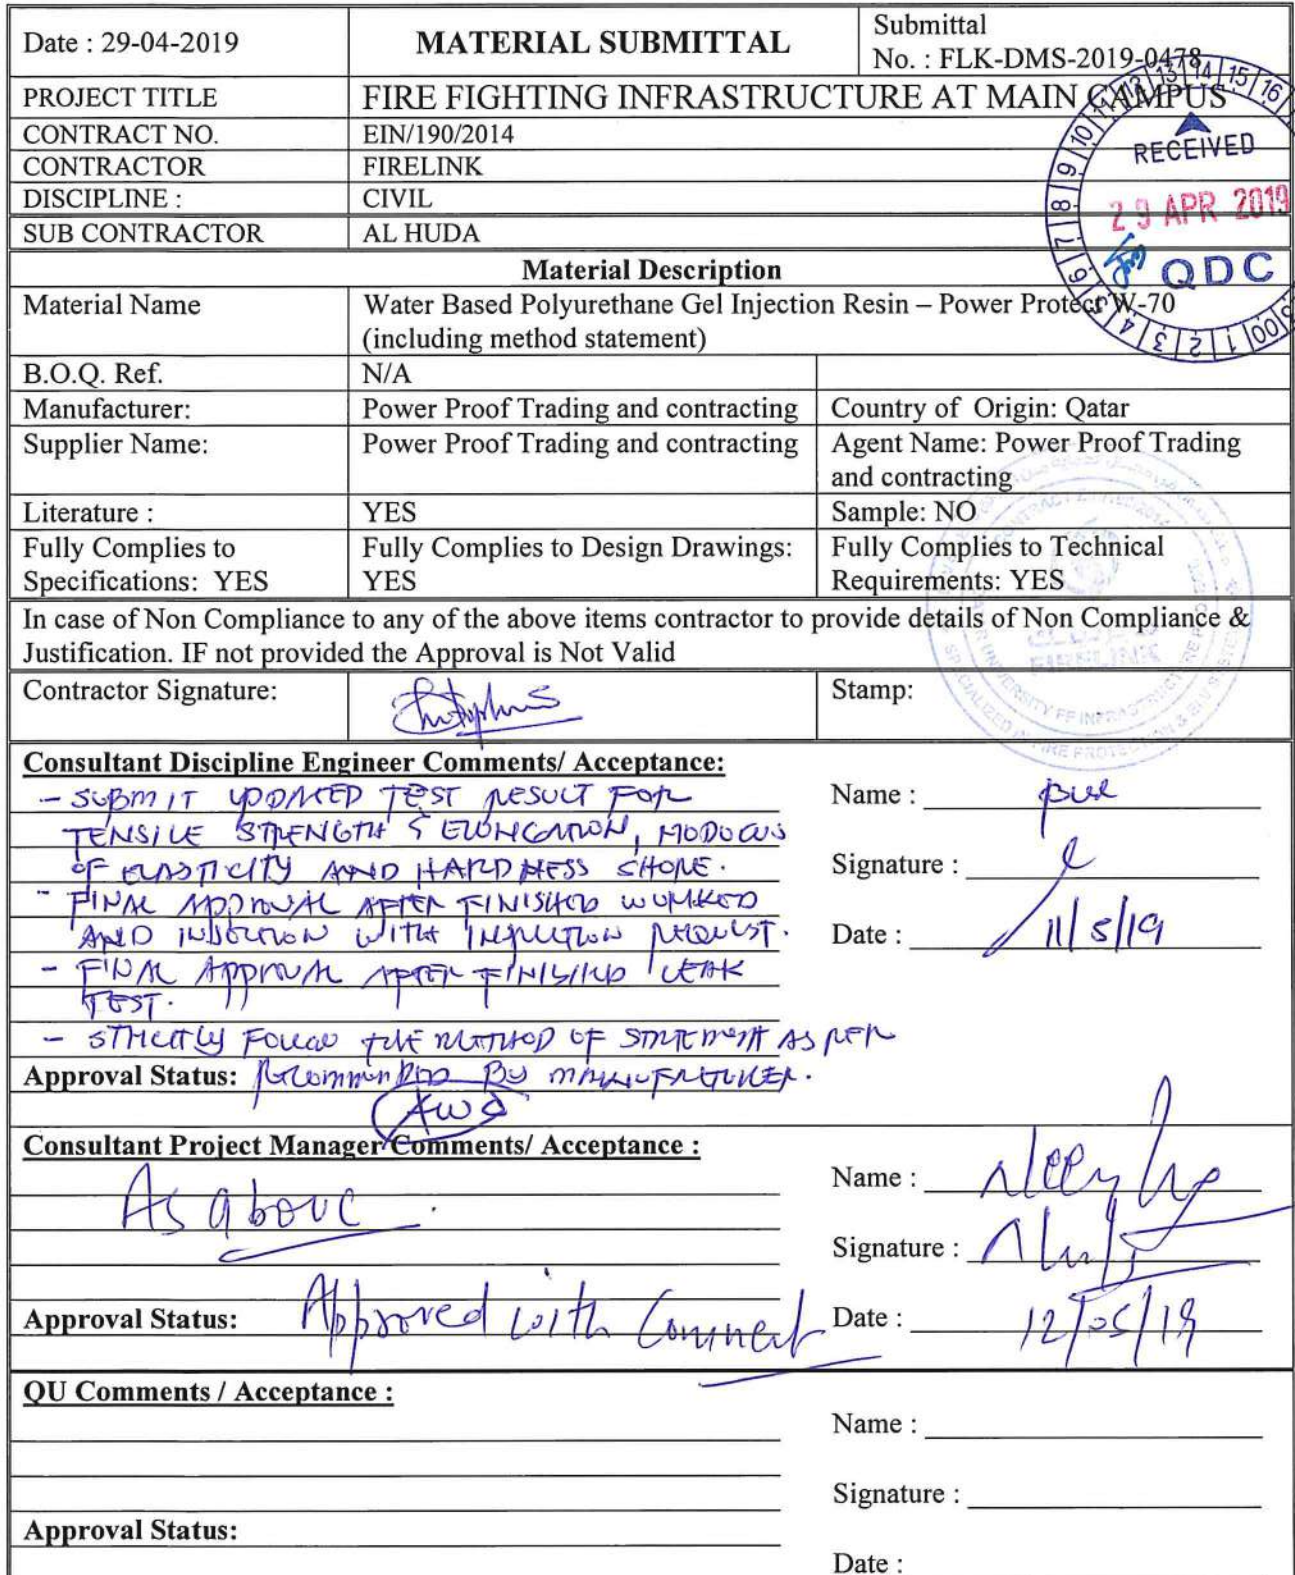 Date : 29-04-2019
MATERIAL SUBMITTAL
Submittal
No. : FLK-DMS-2019-0478
PROJECT TITLE
FIRE FIGHTING INFRASTRUCTURE AT MAIN CAMPUS
CONTRACT NO.
EIN/190/2014
CONTRACTOR
FIRELINK
DISCIPLINE :
CIVIL
SUB CONTRACTOR
AL HUDA
RECEIVED
29 APR 2019
QDC
Material Description
Material Name
Water Based Polyurethane Gel Injection Resin – Power Protect W-70
(including method statement)
B.O.Q. Ref.
N/A
Manufacturer:
Power Proof Trading and contracting
Country of Origin: Qatar
Supplier Name:
Power Proof Trading and contracting
Agent Name: Power Proof Trading
and contracting
Literature :
YES
Sample: NO
Fully Complies to
Specifications: YES
Fully Complies to Design Drawings:
YES
Fully Complies to Technical
Requirements: YES
In case of Non Compliance to any of the above items contractor to provide details of Non Compliance &
Justification. IF not provided the Approval is Not Valid
Contractor Signature:
Stamp:
FIRELINK
Consultant Discipline Engineer Comments/ Acceptance:
- SUBMIT UPDATED TEST RESULT FOR
TENSILE STRENGTH & ELONGATION, MODULUS
OF ELASTICITY AND HARDNESS SHORE.
- FINAL APPROVAL AFTER FINISHED WORKED
AND INJECTION WITH INSPECTION REQUEST.
- FINAL APPROVAL AFTER FINISHED LEAK
TEST.
- STRICTLY FOLLOW THE METHOD OF STATEMENT AS PER
Approval Status: RECOMMENDED BY MANUFACTURER.
AWC
Name :
Signature :
Date : 11/5/19
Consultant Project Manager Comments/ Acceptance :
As above.
Name :
Signature :
Approval Status: Approved with Comment
Date : 12/05/19
QU Comments / Acceptance :
Name :
Signature :
Approval Status:
Date :